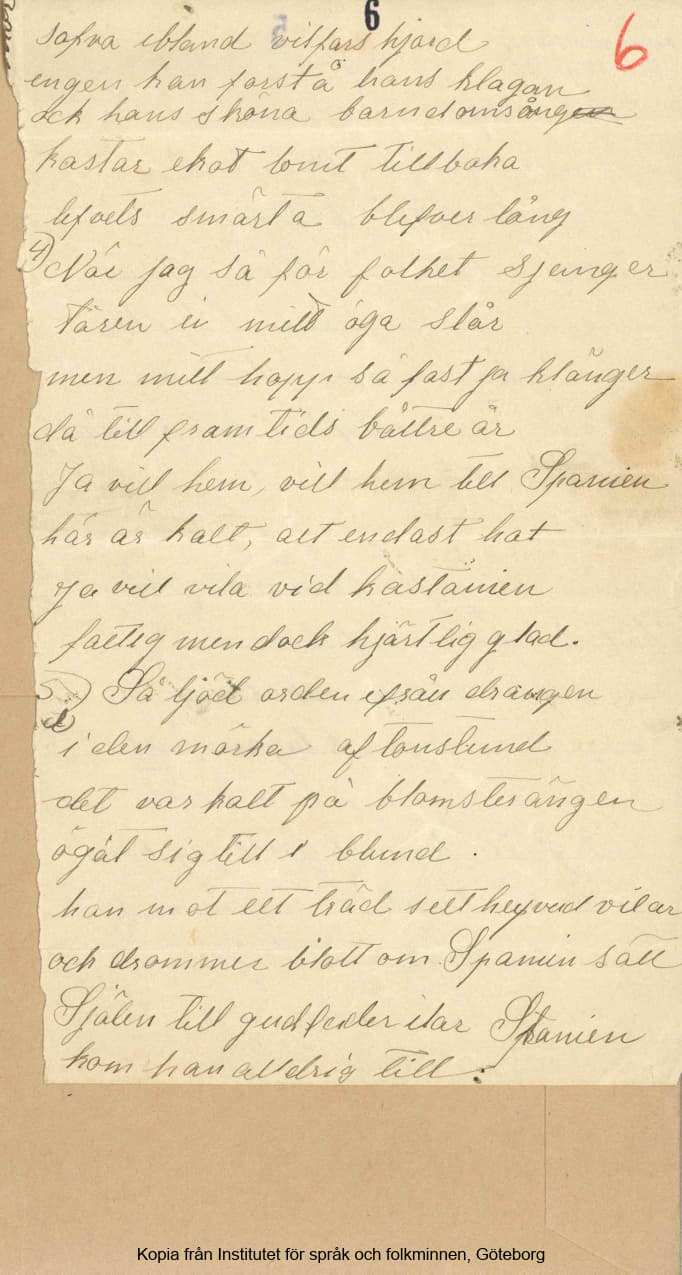 6
6
sofva ibland vilfars hjord
ingen kan forstå hans klagan
ock hans sköna barndomsång
kastar ekot tomt tillbaka
lifvets smärta blifver lång
4) När jag så för folket sjunger
tåren ei mitt öga slår
men mitt hopp så fast ja klänger
då till framtids bättre år
Ja vill hem, vill hem till Spanien
här är kalt, alt endast hat
Ja vill vila vid kastanien
fattig men dock hjärtlig glad.
5) Så ljöd orden ifrån drangen
i den mörka aftonstund
det var kalt på blomsterängen
ögat sig till i blund.
han mot ett träd sitt huvud vilar
och drommer blott om Spanien sätt
Själen till gudfader ilar Spanien
kom han alldrig till.
Kopia från Institutet för språk och folkminnen, Göteborg